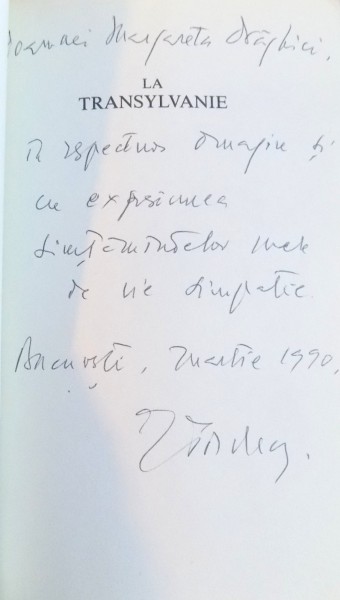 Doamnei Margareta Drăghici,
LA
TRANSYLVANIE
respectuos omagiu și
cu expresiunea
simțămintelor mele
de vie simpatie.
București, martie 1990,